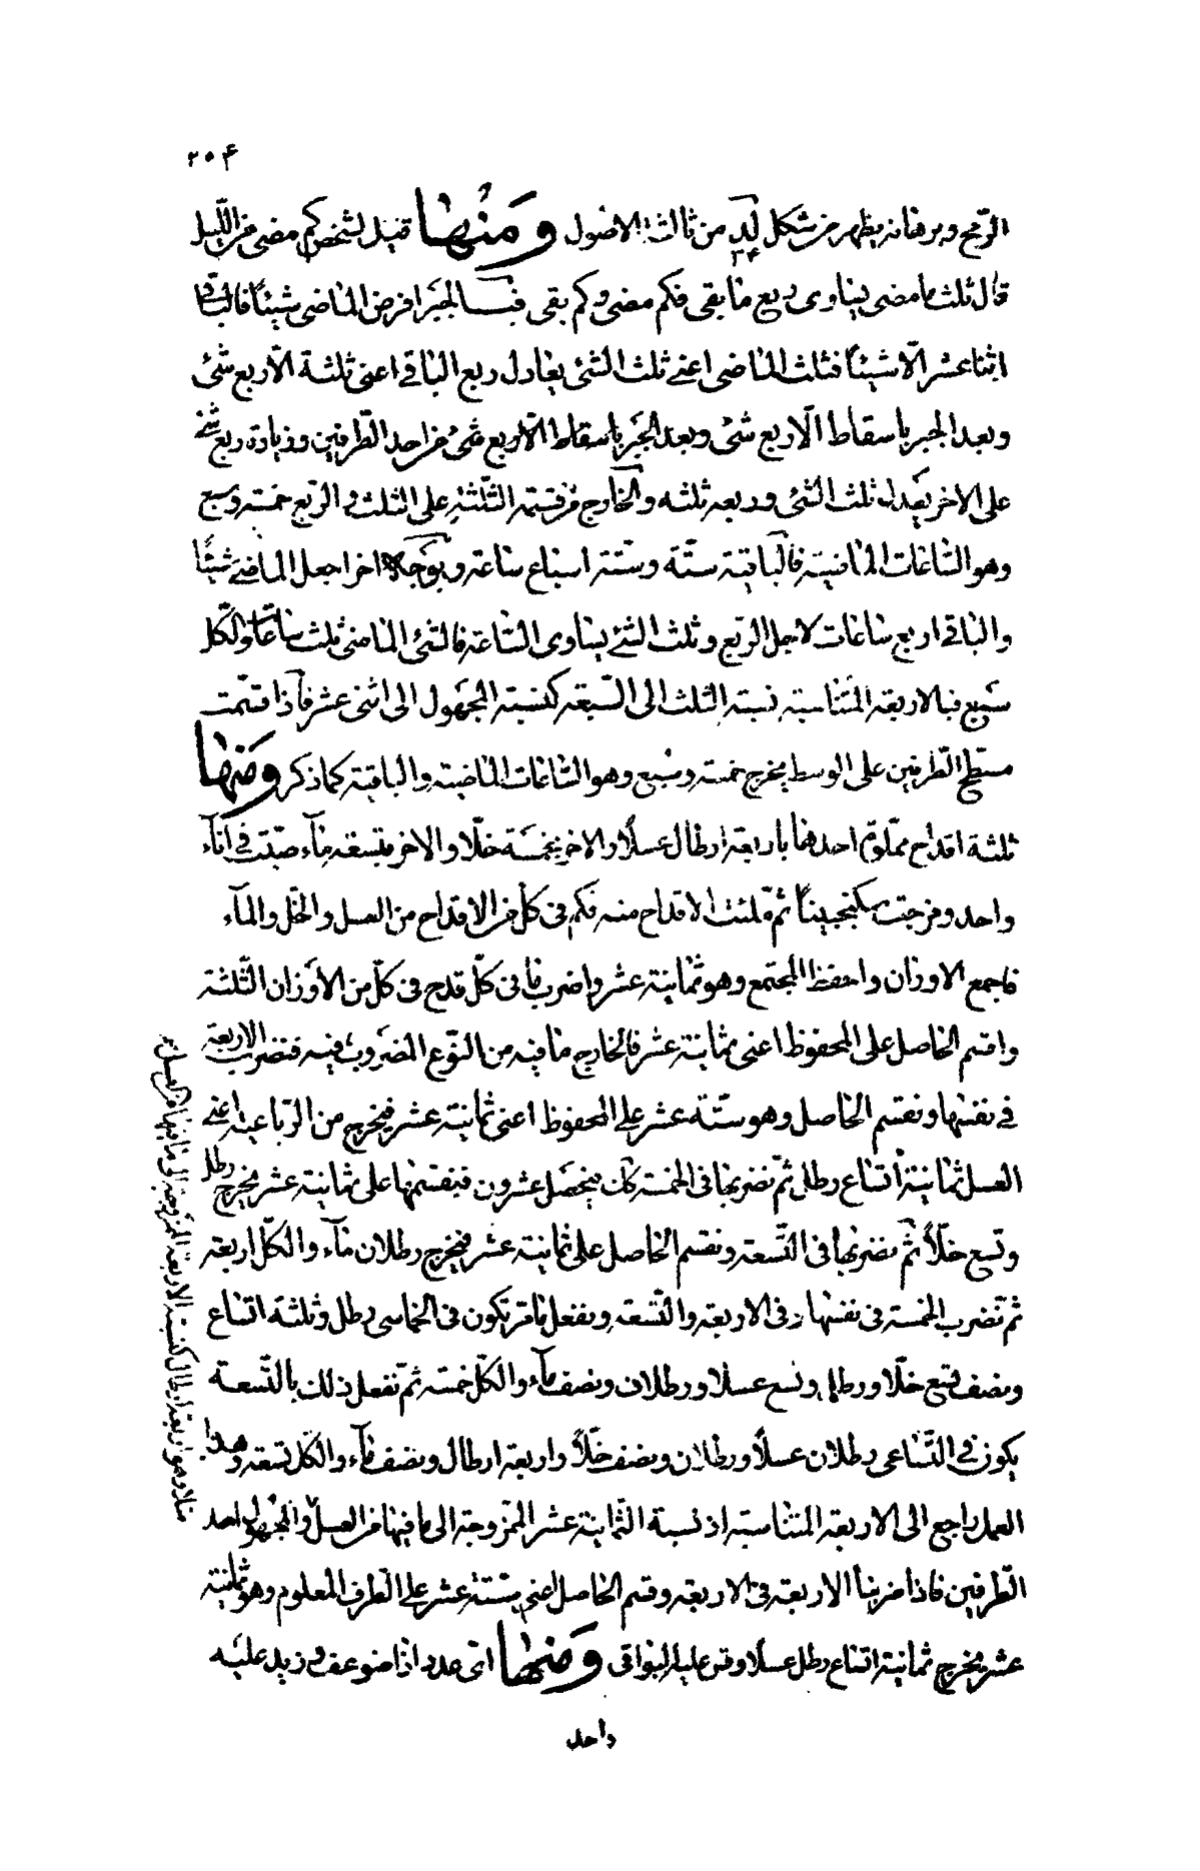 ٢٥٤
الرمح وبرهانه يظهر من شكل لد من ثالث الاصول ومنها قيل لشخص كم مضى من الليل
٣٤
قال ثلث ما مضى يساوى ربع ما بقى فكم مضى وكم بقى فبالجبر افرض الماضى شيئا فالباقى
اثنا عشر الا شيئا فثلث الماضى اعنى ثلث الشئ يعادل ربع الباقى اعنى ثلثة الا ربع شئ
وبعد الجبر باسقاط الا ربع شئ وبعد الجبر باسقاط الا ربع شئ من احد الطرفين وزيادة ربع شئ
على الاخر يعدل ثلث الشئ وربعه ثلثه والخارج من قسمة الثلثة على الثلث والربع خمسة وسبع
وهو الساعات الماضية فالباقية ستة وستة اسباع ساعة وبوجه اخر اجعل الماضى شيئا
والباقى اربع ساعات لاجل الربع وثلث الشئ يساوى الساعة فالشئ الماضى ثلث ساعات والكل
سبع فبالاربعة المتناسبة نسبة الثلث الى السبعة كنسبة المجهول الى اثنى عشر فاذا قسمت
مسطح الطرفين على الوسط يخرج خمسة وسبع وهو الساعات الماضية والباقية كما ذكر ومنها
ثلثة اقداح مملوة احدها باربعة ارطال عسلا والاخر بخمسة خلا والاخر بتسعة ماء صبت فى اناء
واحد ومزجت سكنجبينا ثم ملئت الاقداح منه فكم فى كل من الاقداح من العسل والخل والماء
فاجمع الاوزان واحفظ المجتمع وهو ثمانية عشر واضرب ما فى كل قدح فى كل من الاوزان الثلثة
واقسم الحاصل على المحفوظ اعنى ثمانية عشر فالخارج ما فيه من النوع المضروب فيه فتضرب الاربعة
فى نفسها ونقسم الحاصل وهو ستة عشر على المحفوظ اعنى ثمانية عشر فيخرج من الرباعية اعنى
العسل ثمانية اتساع رطل ثم نضربها فى الخمسة كان فيحصل عشرون فنقسمها على ثمانية عشر يخرج رطل
وتسع خلا ثم نضربها فى التسعة ونقسم الحاصل على ثمانية عشر فيخرج رطلان ماء والكل اربعة
ثم تضرب الخمسة فى نفسها وفى الاربعة والتسعة وبفعل ما مر تكون فى الخماسى رطل وثلثة اتساع
ونصف تسع خلا ورطل وتسع عسلا ورطلان ونصف ماء والكل خمسة ثم تفعل ذلك بالتسعة
يكون فى التساعى رطلان عسلا ورطلان ونصف خلا واربعة ارطال ونصف ماء والكل تسعة وهذا
العمل راجع الى الاربعة المتناسبة اذ نسبة الثمانية عشر الممزوجة الى ما فيها من العسل والمجهول احد
الطرفين فاذا ضربنا الاربعة فى الاربعة وقسم الحاصل اعنى ستة عشر على الطرف المعلوم وهو ثمانية
عشر يخرج ثمانية اتساع رطل عسلا وقس عليه البواقى ومنها اى عدد اذا ضوعف وزيد عليه
واحد
مثلا وهو اربعة ارطال كنسبة الاربعة الممزوجة الى ما فيها من العسل